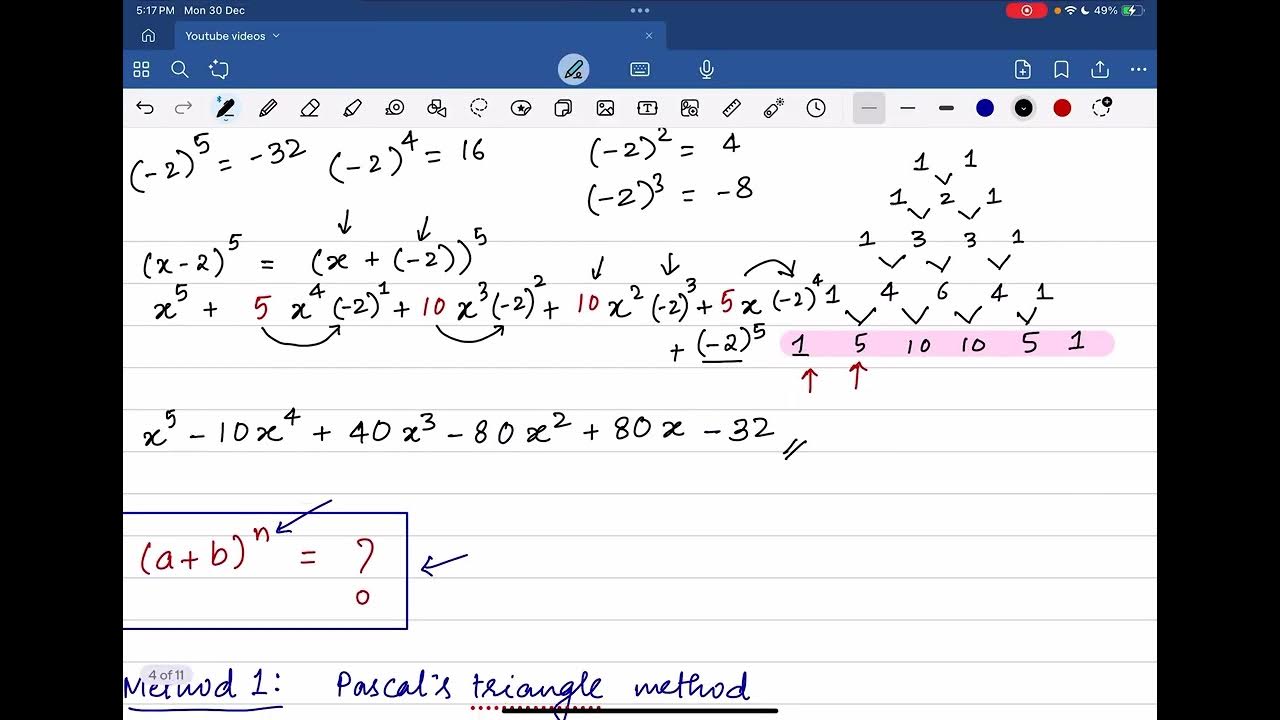 5:17 PM Mon 30 Dec
49%
Youtube videos
(-2)⁵ = -32 (-2)⁴ = 16 (-2)² = 4
(-2)³ = -8
1 1
1 2 1
1 3 3 1
1 4 6 4 1
1 5 10 10 5 1
(x-2)⁵ = (x + (-2))⁵
x⁵ + 5 x⁴ (-2)¹ + 10 x³ (-2)² + 10 x² (-2)³ + 5 x (-2)⁴
+ (-2)⁵
x⁵ - 10x⁴ + 40x³ - 80x² + 80x - 32
(a+b)ⁿ = ?
4 of 11
Method 1: Pascal's triangle method